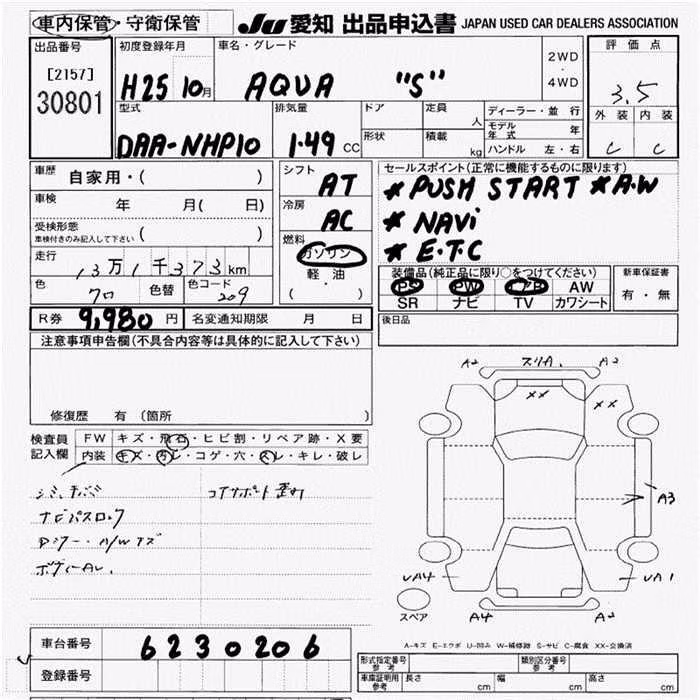 車内保管・守衛保管 JU 愛知 出品申込書 JAPAN USED CAR DEALERS ASSOCIATION
出品番号 初度登録年月 車名・グレード 2WD・4WD 評価点
[2157]
30801
H25 10月 AQUA "S" 3.5
型式 排気量 ドア 定員 人 ディーラー・並行 外装 内装
モデル年式 年
DAA-NHP10 1.49 CC 形状 積載 kg ハンドル 左・右 C C
車歴 自家用・( ) シフト AT セールスポイント(正常に機能するものに限ります)
* PUSH START * A.W
車検 年 月( 日) 冷房 AC * NAVi
受検形態 ( ) 燃料 * E.T.C
車検付きのみ記入して下さい
ガソリン
走行 13万1千373km 軽・油 装備品(純正品に限り○をつけてください) 新車保証書
( ・ ) PS PW AB AW 有・無
色 クロ 色替 色コード 209 SR ナビ TV カワシート
R券 9,980円 名変通知期限 月 日 後日品
注意事項申告欄(不具合内容等は具体的に記入して下さい)
修復歴 有 (箇所 )
検査員記入欄 FW キズ・飛石・ヒビ割・リペア跡・X要
内装 キズ・汚レ・コゲ・穴・スレ・キレ・破レ
ナビパスロック
A2 スリA. A2
XX XX
A3
UA4 UA1
A4 A2
スペア
A-キズ E-エクボ U-凹み W-補修跡 S-サビ C-腐食 XX-交換済
車台番号 6230206
登録番号
型式指定番号 参考 類別区分番号 参考
車庫証明用 参考 長さ cm 幅 cm 高さ cm